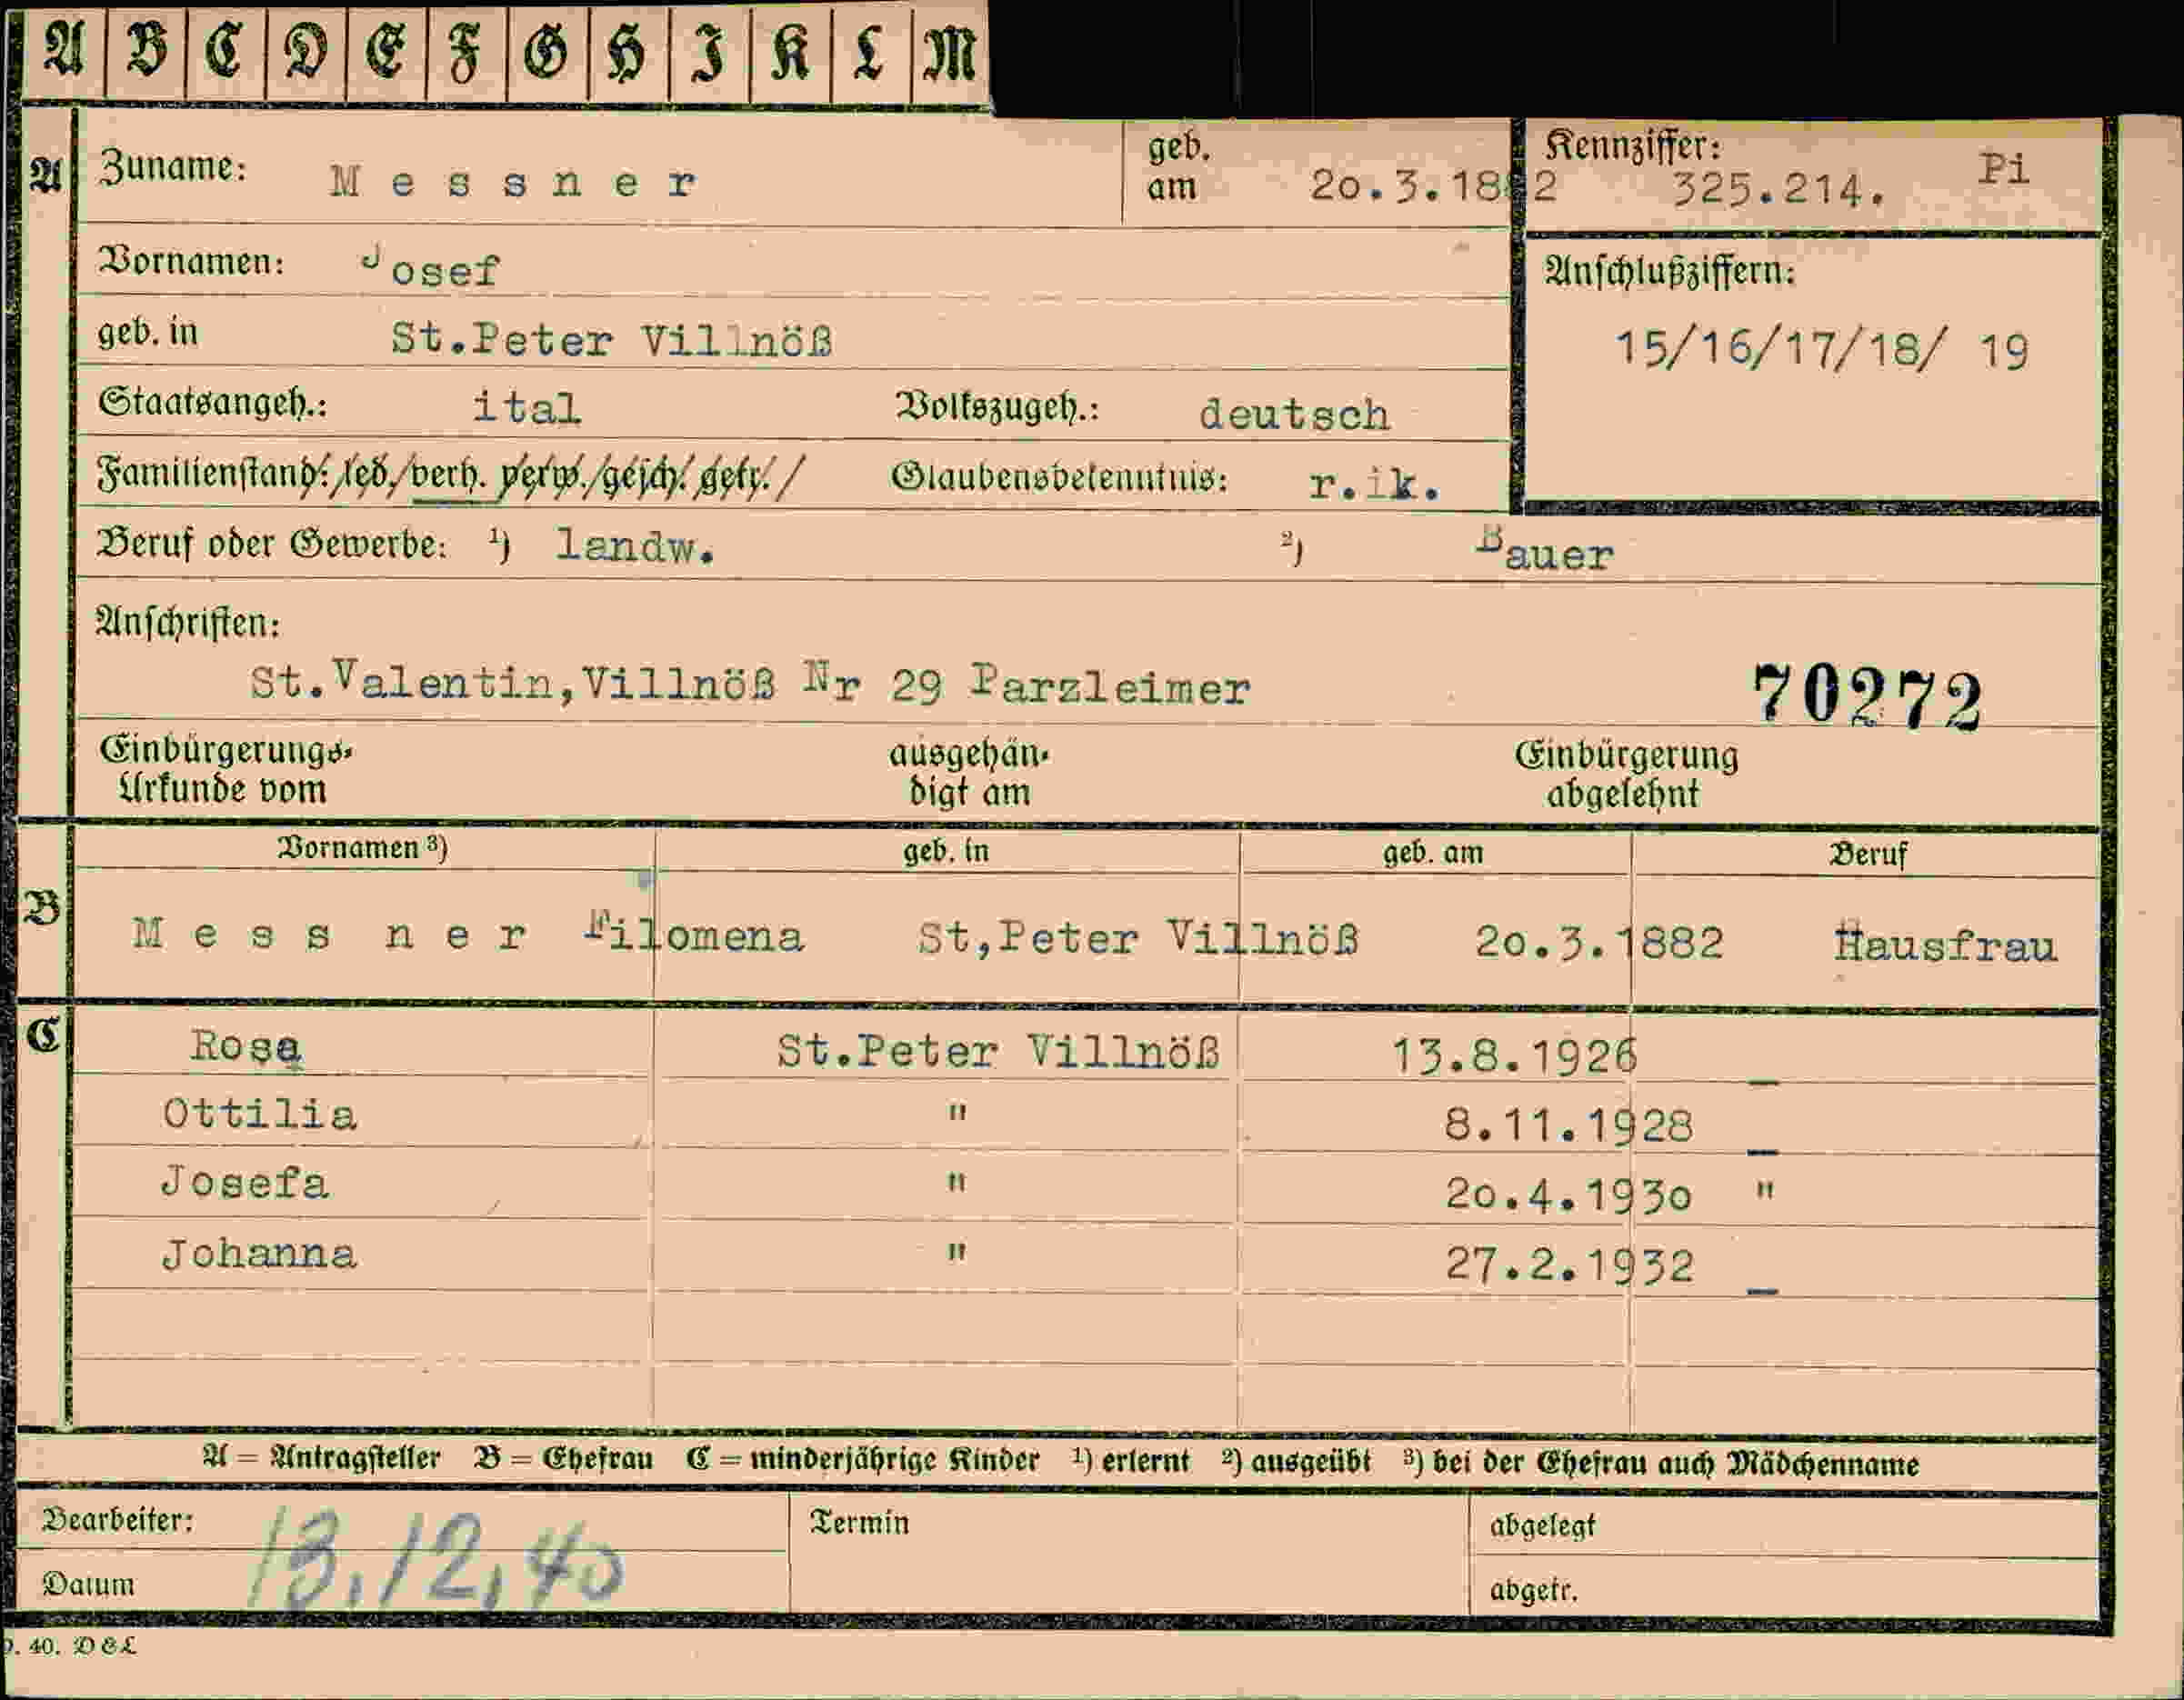 A B C D E F G H I K L M
A Zuname: Messner geb. am 20.3.1882 Kennziffer: 325.214. Pi
Vornamen: Josef
Anschlußziffern:
geb. in St.Peter Villnöß
15/16/17/18/ 19
Staatsangeh.: ital Volkszugeh.: deutsch
Familienstand: led. verh. verw. gesch. getr. Glaubensbekenntnis: r.ik.
Beruf oder Gewerbe: 1) landw. 2) Bauer
Anschriften:
St.Valentin,Villnöß Nr 29 Parzleimer 70272
Einbürgerungs- ausgehän- Einbürgerung
Urkunde vom digt am abgelehnt
Vornamen 3) geb. in geb. am Beruf
B Messner Filomena St,Peter Villnöß 20.3.1882 Hausfrau
C Rosa St.Peter Villnöß 13.8.1926 _
Ottilia " 8.11.1928 _
Josefa " 20.4.1930 "
Johanna " 27.2.1932 _
A = Antragsteller B = Ehefrau C = minderjährige Kinder 1) erlernt 2) ausgeübt 3) bei der Ehefrau auch Mädchenname
Bearbeiter: Termin abgelegt
13.12.40
Datum abgetr.
40. D&L